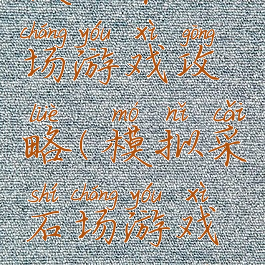 chǎng yóu xì gōng
场游戏攻
lüè mó nǐ cǎi
略(模拟采
shí chǎng yóu xì
石场游戏